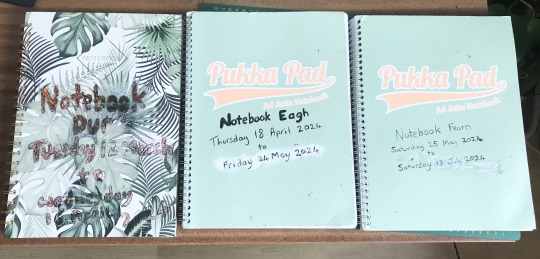 Notebook
Tuesday 12 March
to
Pukka Pad
A4 Jotta Notebook
Notebook Eagh
Thursday 18 April 2024
to
Friday 24 May 2024
Pukka Pad
A4 Jotta Notebook
Notebook Fearn
Saturday 25 May 2024
to
Saturday 13 July 2024